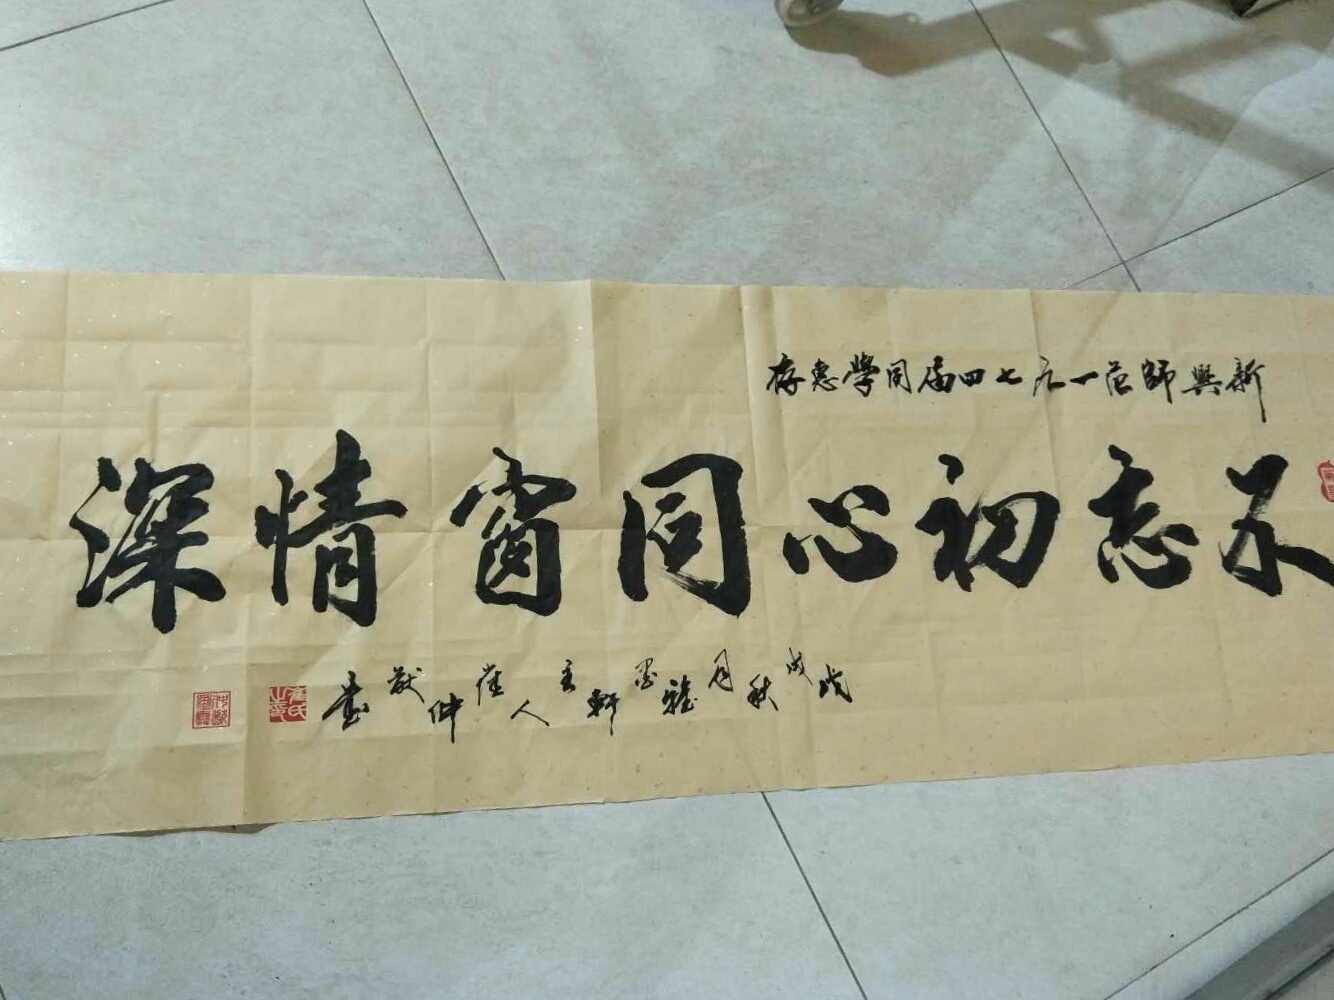 新興師范一九七四届同學惠存
不忘初心同窗情深
戊戌秋月雅墨軒主人崔仲猷書
崔氏之章